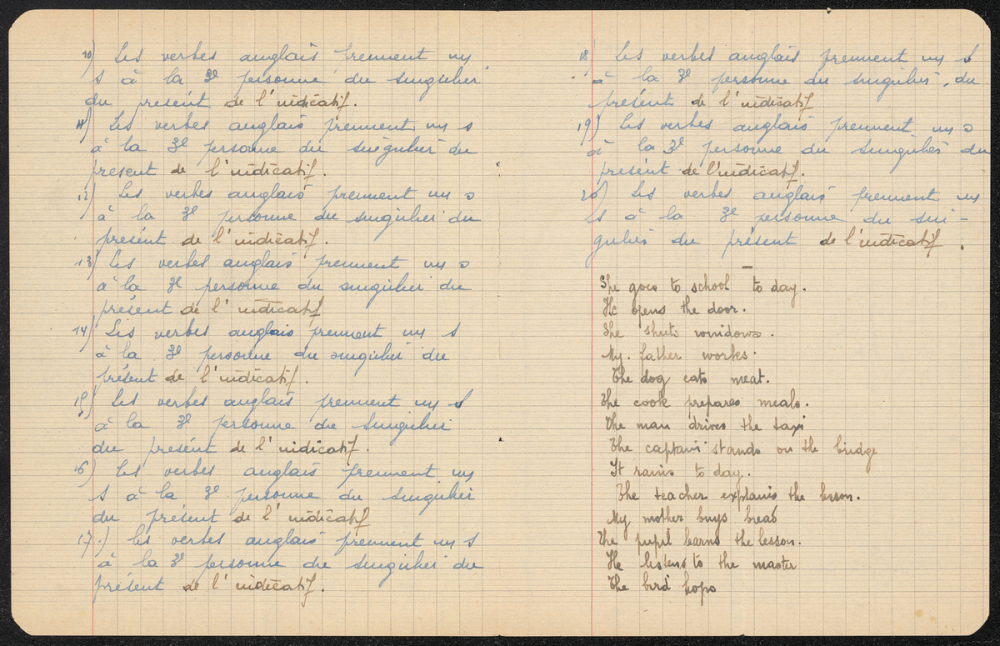 10) Les verbes anglais prennent un
s à la 3e personne du singulier
du présent de l'indicatif.
11) Les verbes anglais prennent un s
à la 3e personne du singulier du
présent de l'indicatif.
12) Les verbes anglais prennent un s
à la 3e personne du singulier du
présent de l'indicatif.
13) Les verbes anglais prennent un s
à la 3e personne du singulier du
présent de l'indicatif
14) Les verbes anglais prennent un s
à la 3e personne du singulier du
présent de l'indicatif.
15) Les verbes anglais prennent un s
à la 3e personne du singulier
du présent de l'indicatif.
16) Les verbes anglais prennent un
s à la 3e personne du singulier
du présent de l'indicatif
17.) les verbes anglais prennent un s
à la 3e personne du singulier du
présent de l'indicatif.
18) Les verbes anglais prennent un s
à la 3e personne du singulier du
présent de l'indicatif
19) Les verbes anglais prennent un s
à la 3e personne du singulier du
présent de l'indicatif.
20) Les verbes anglais prennent un
s à la 3e personne du sin-
gulier du présent de l'indicatif.
She goes to school to day.
He opens the door.
She shuts windows.
My father works.
The dog eats meat.
The cook prepares meals.
The man drives the taxi
The captain stands on the bridge
It rains to day.
The teacher explains the lesson.
My mother buys bread
The pupil learns the lesson.
He listens to the master
The bird hops